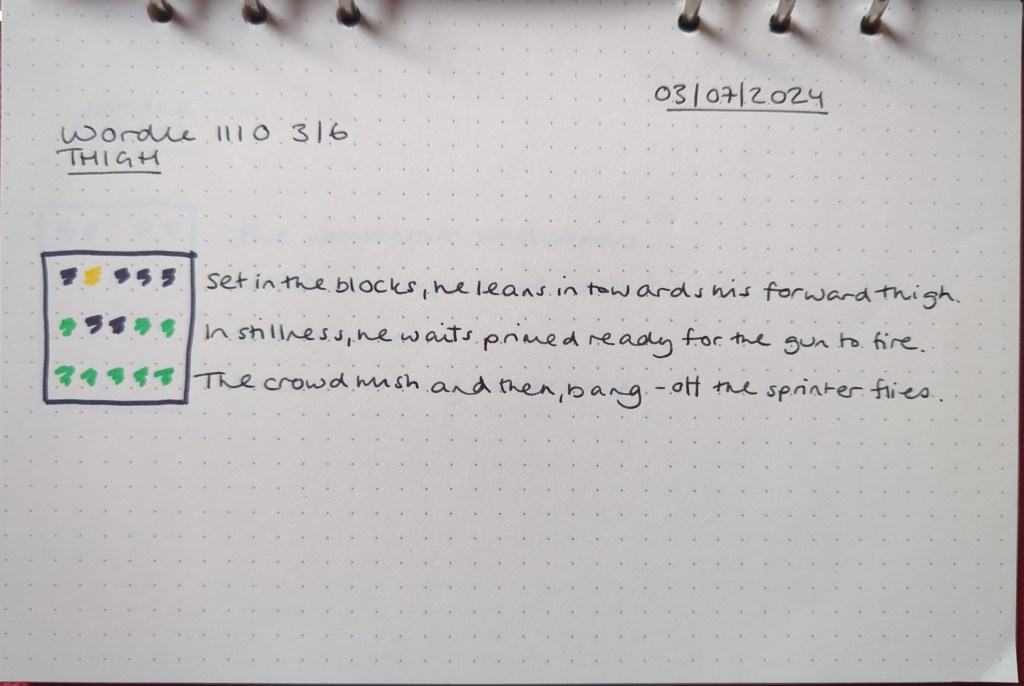 03/07/2024
Wordle 1110 3/6
THIGH
Set in the blocks, he leans in towards his forward thigh.
In stillness, he waits primed ready for the gun to fire.
The crowd hush and then, bang - off the sprinter flies.